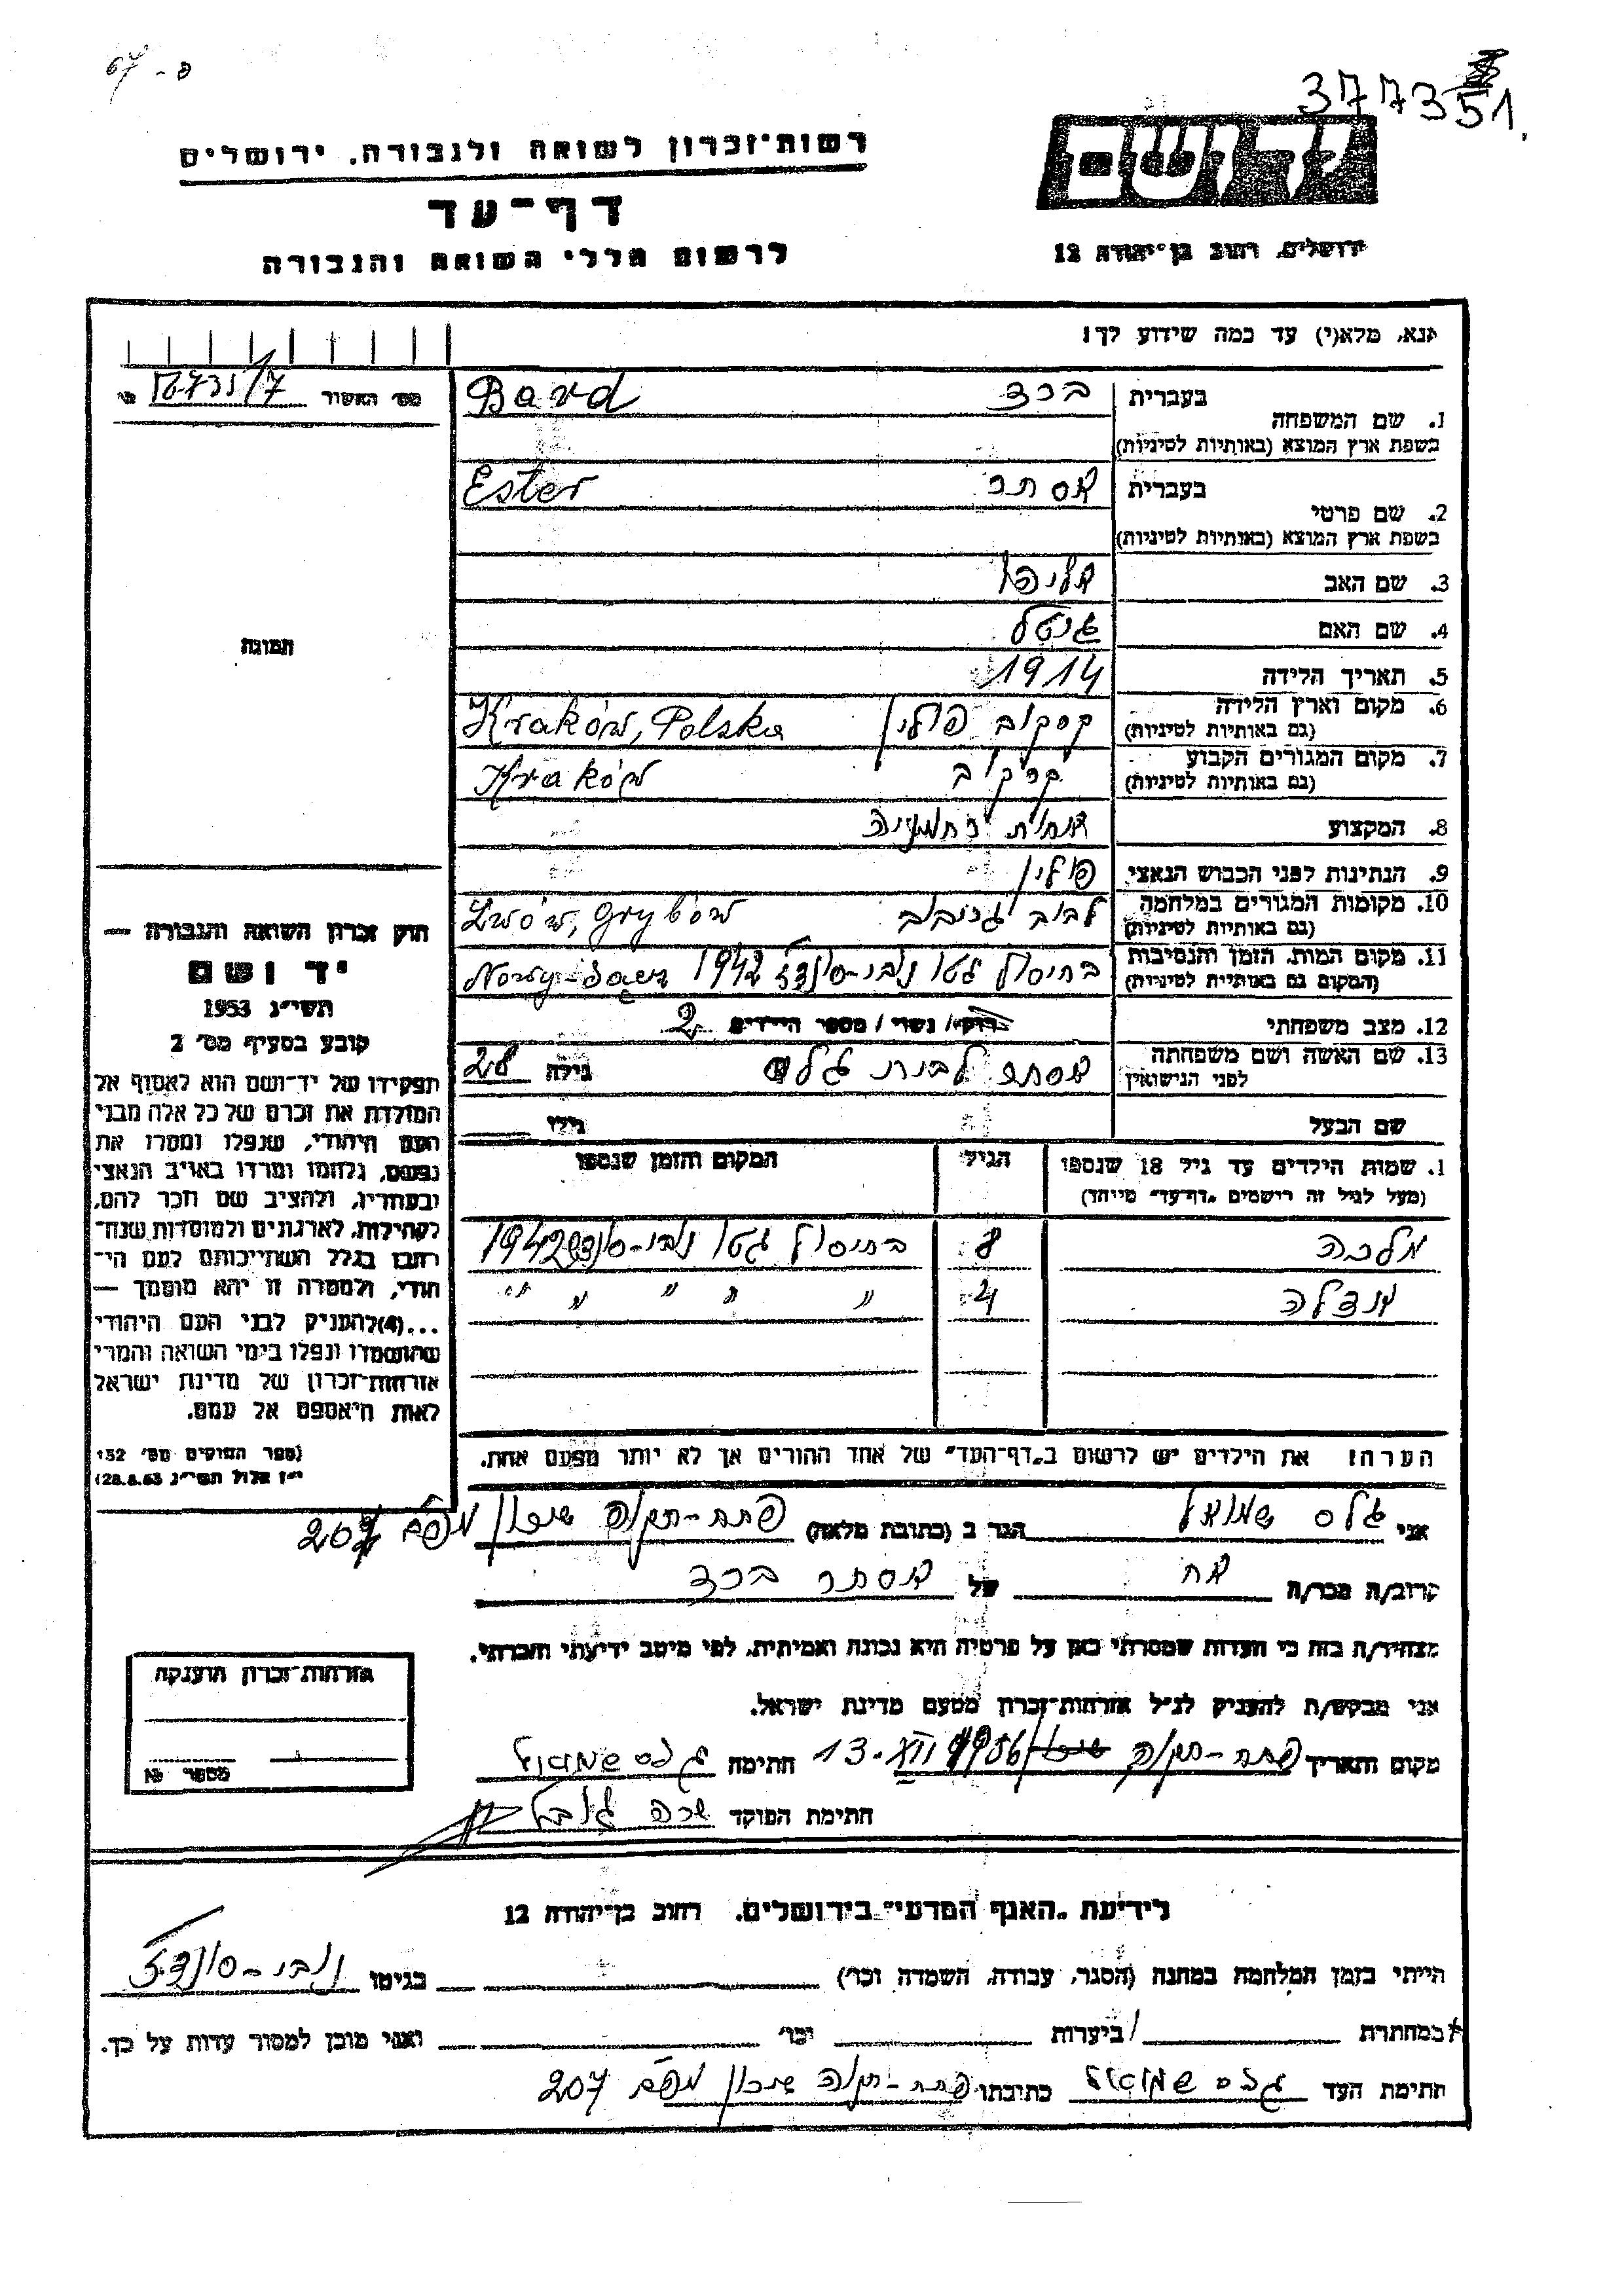 67 - פ
377351
רשות־זכרון לשואה ולגבורה. ירושלים
דף־עד
לרשום חללי השואה והגבורה
יד ושם
ירושלים, רחוב בן־יהודה 12
אנא, מלא(י) עד כמה שידוע לך!
מס׳ האשור
1. שם המשפחה
בעברית ברד Bard
בשפת ארץ המוצא (באותיות לטיניות)
2. שם פרטי
בעברית אסתר Ester
בשפת ארץ המוצא (באותיות לטיניות)
3. שם האב
4. שם האם גיטל
5. תאריך הלידה 1914
6. מקום וארץ הלידה קרקוב פולין Kraków, Polska
(גם באותיות לטיניות)
7. מקום המגורים הקבוע קרקוב Kraków
(גם באותיות לטיניות)
8. המקצוע אחות רחמניה
9. הנתינות לפני הכבוש הנאצי פולין
10. מקומות המגורים במלחמה לבוב גריבוב Lwów, Grybów
(גם באותיות לטיניות)
11. מקום המות, הזמן והנסיבות בחיסול גטו נובי-סונדז 1942 Nowy-Sącz
(המקום גם באותיות לטיניות)
12. מצב משפחתי רווק/ נשוי / מספר הילדים 2
13. שם האשה ושם משפחתה אסתר לבית גלס גילה 28
לפני הנישואין
שם הבעל גילו
1. שמות הילדים עד גיל 18 שנספו הגיל המקום והזמן שנספו
(מעל לגיל זה רושמים „דף־עד״ מיוחד)
מלכה 8 בחיסול גטו נובי-סונדז 1942
4 " " " " "
הערה: את הילדים יש לרשום ב„דף־העד״ של אחד ההורים אך לא יותר מפעם אחת.
תמונה
חוק זכרון השואה והגבורה —
יד ושם
תשי״ג 1953
קובע בסעיף מס׳ 2
תפקידו של יד־ושם הוא לאסוף אל
המולדת את זכרם של כל אלה מבני
העם היהודי, שנפלו ומסרו את
נפשם, נלחמו ומרדו באויב הנאצי
ובעוזריו, ולהציב שם וזכר להם,
לקהילות, לארגונים ולמוסדות שנח־
רבו בגלל השתייכותם לעם הי־
הודי, ולמטרה זו יהא מוסמך —
...(4)להעניק לבני העם היהודי
שהושמדו ונפלו בימי השואה והמרי
אזרחות־זכרון של מדינת ישראל
לאות היאספם אל עמם.
(ספר החוקים מס׳ 132
י״ז אלול תשי״ג 28.8.53)
אני גלס שמואל הגר ב (כתובת מלאה) פתח-תקוה שיכון מפ״ם 207
קרוב/ה מכר/ה אח של אסתר ברד
מצהיר/ה בזה כי העדות שמסרתי כאן על פרטיה היא נכונה ואמיתית, לפי מיטב ידיעתי והכרתי.
אני מבקש/ת להעניק לנ״ל אזרחות־זכרון מטעם מדינת ישראל.
מקום ותאריך פתח-תקוה 13. VII 1956 חתימה גלס שמואל
חתימת הפוקד שרה
אזרחות־זכרון הוענקה
מספר №
לידיעת „האגף המדעי״ בירושלים. רחוב בן־יהודה 12
הייתי בזמן המלחמה במחנה (הסגר, עבודה, השמדה וכו׳) בגיטו נובי-סונדז
במחתרת / ביערות וכו׳ ואני מוכן למסור עדות על כך.
חתימת העד גלס שמואל כתובתו פתח-תקוה שיכון מפ״ם 207